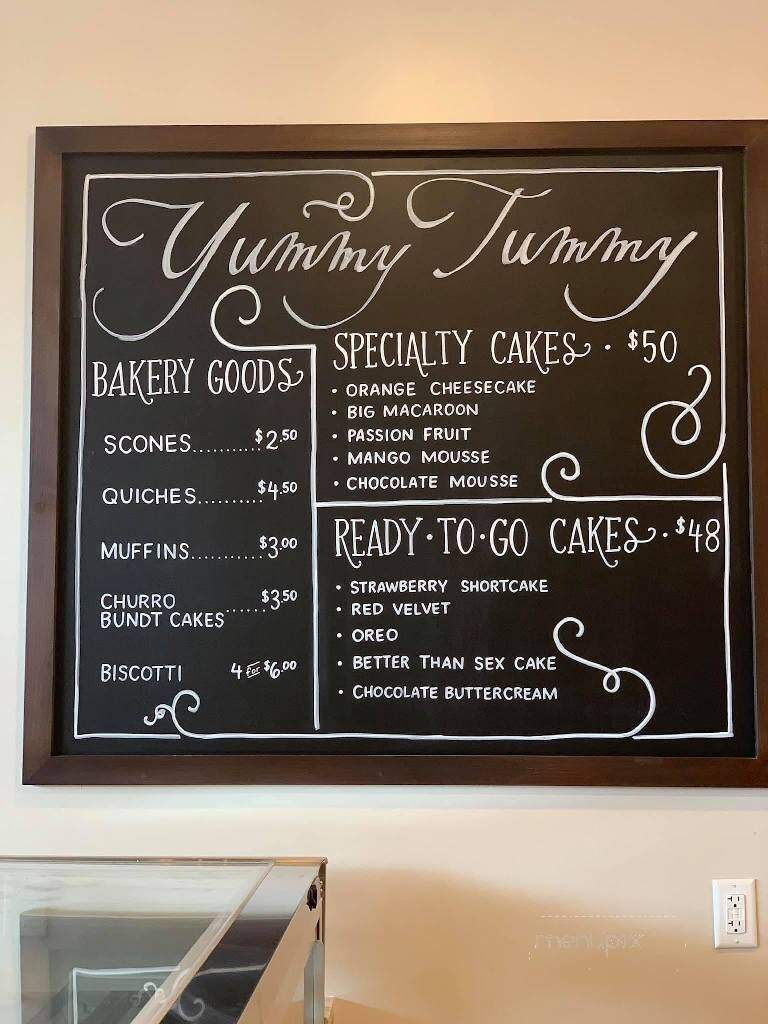 Yummy Tummy
BAKERY GOODS
SCONES..........$2.50
QUICHES..........$4.50
MUFFINS..........$3.00
CHURRO
BUNDT CAKES......$3.50
BISCOTTI 4 for $6.00
SPECIALTY CAKES · $50
• ORANGE CHEESECAKE
• BIG MACAROON
• PASSION FRUIT
• MANGO MOUSSE
• CHOCOLATE MOUSSE
READY·TO·GO CAKES · $48
• STRAWBERRY SHORTCAKE
• RED VELVET
• OREO
• BETTER THAN SEX CAKE
• CHOCOLATE BUTTERCREAM
menupix